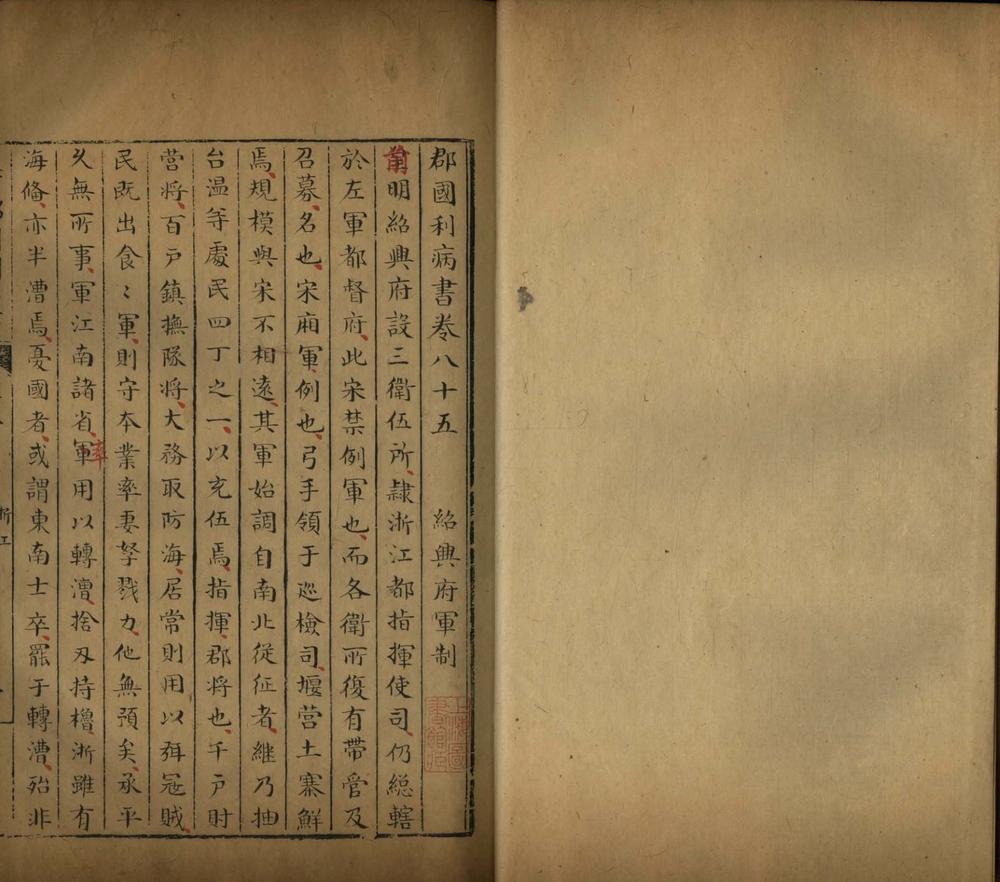 郡國利病書卷八十五　紹興府軍制
明紹興府設三衛伍所、隷浙江都指揮使司、仍総轄
於左軍都督府、此宋禁例軍也、而各衛所復有帶管及
召募、名也、宋廂軍、例也、弓手領于巡檢司、堰营土寨鮮
焉、規模與宋不相遠、其軍始調自南北從征者、継乃抽
台温等處民四丁之一、以充伍焉、指揮、郡将也、千戸时
营将、百戸鎮撫隊将、大務取防海、居常則用以弭冦賊、
民既出食〻軍、則守夲業率妻孥戮力、他無預矣、承平
久無所事、軍江南諸省、軍用以轉漕、捨刃持櫓、浙雖有
率
海俻、亦半漕焉、憂國者、或謂東南士卒、罷于轉漕、殆非
浙江
上海圖書館藏